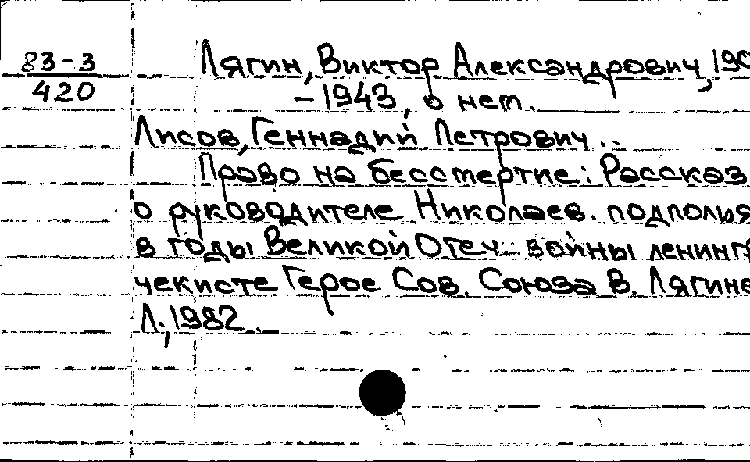 83-3
420
Лягин, Виктор Александрович, 190
-1943, о нем.
Лисов, Геннадий Петрович.
Право на бессмертие: Рассказ
о руководителе Николаев. подполья
в годы Великой Отеч. войны ленингр
чекисте Герое Сов. Союза В. Лягине
Л., 1982.